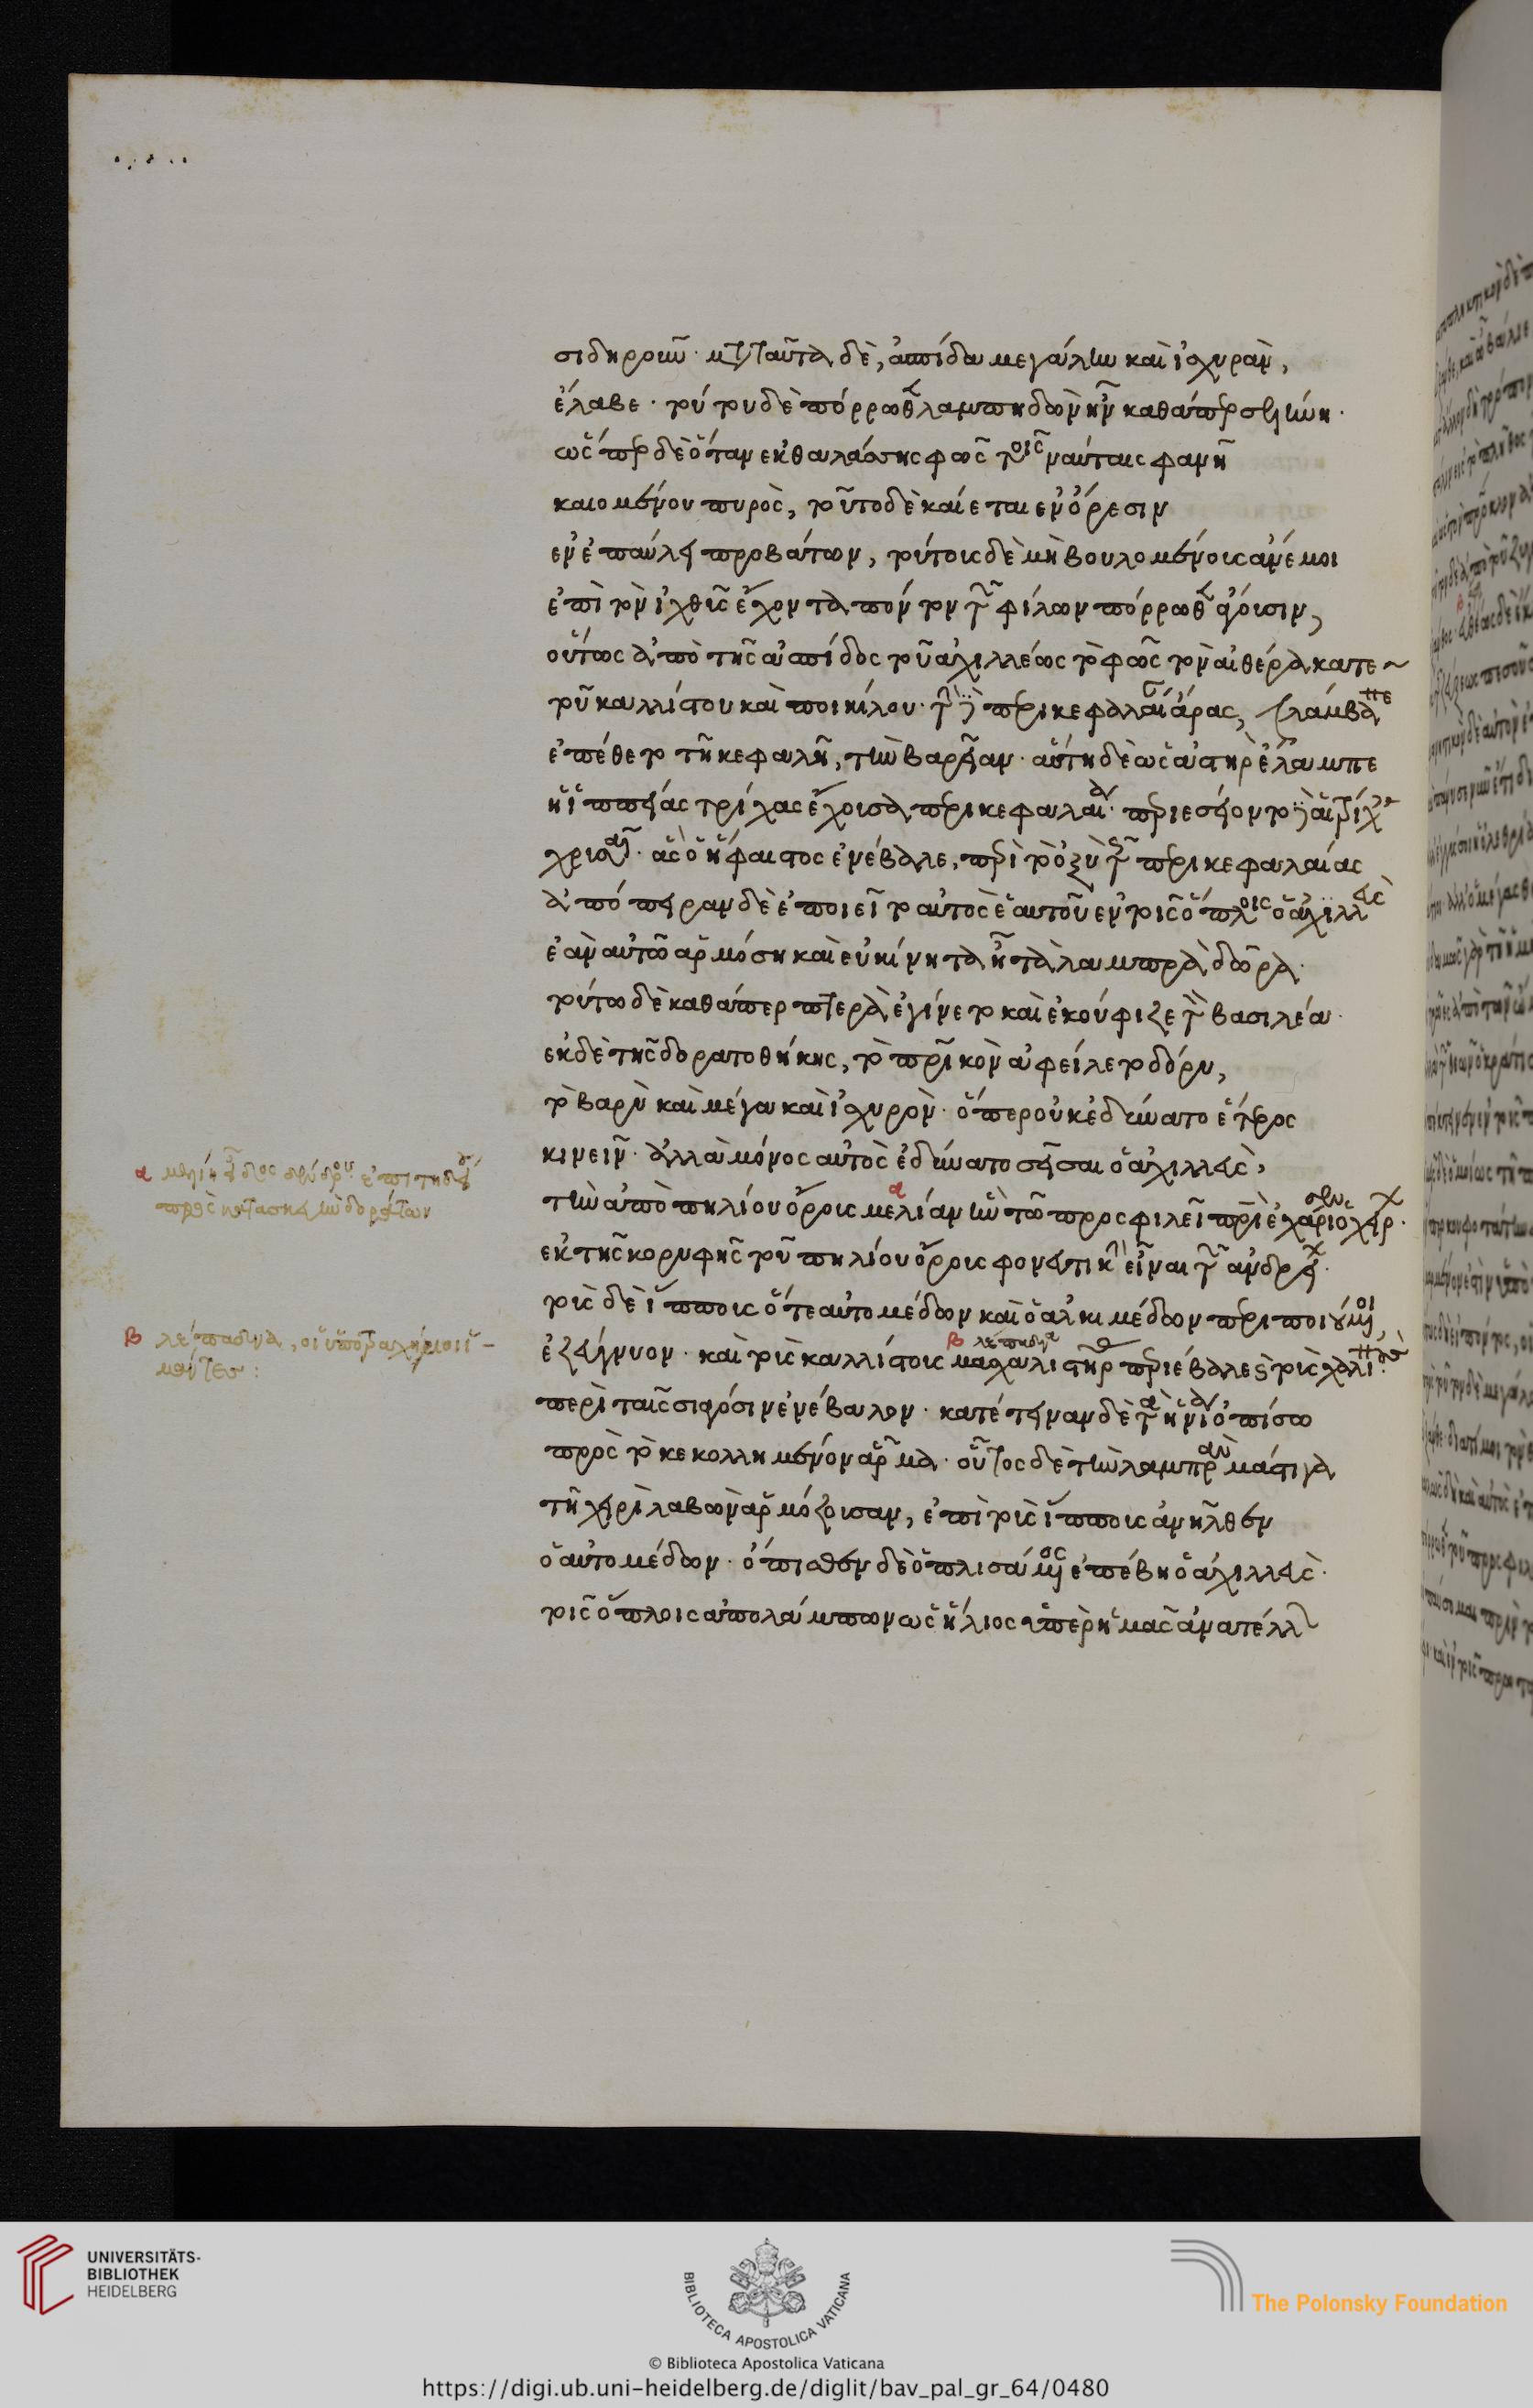 σιδηροῦν· μετὰ ταῦτα δὲ, ἀσπίδα μεγάλην καὶ ἰσχυρὰν,
ἔλαβε· τούτου δὲ πόρρωθεν λαμπηδὼν ἦν καθάπερ σελήνη·
ὥσπερ δὲ ὅταν ἐκ θαλάσσης φῶς τοῖς ναύταις φανῆ
καιομένου πυρὸς, τοῦτο δὲ καίεται ἐν ὄρεσιν
ἐν ἐπαύλει προβάτων, τούτοις δὲ μὴ βουλομένοις ἀνέμοι
ἐπὶ τὸν ἰχθῦς ἔχοντα πόντον τῶν φίλων πόρρωθεν ἄγουσιν,
οὕτως ἀπὸ τῆς ἀσπίδος τοῦ ἀχιλλέως τὸ φῶς τὸν αἰθέρα κατε
τοῦ καλλίστου καὶ ποικίλου· τὴν δὲ περικεφαλαίαν ἄρας, λάμβανε
ἐπέθετο τῆ κεφαλῆ, τὴν βαρεῖαν· αὕτη δὲ ὡς ἀστὴρ ἔλαμπε
ἡ ἱππείας τρίχας ἔχουσα περικεφαλαία· περιεσείοντο δὲ αἱ τρίχες
χρυσαῖ· ἃς ὁ ἥφαιστος ἐνέβαλε, περὶ τὸ ὀξὺ τῆς περικεφαλαίας
ἀπόπειραν δὲ ἐποιεῖτο αὐτὸς ἑαυτοῦ ἐν τοῖς ὅπλοις ὁ ἀχιλλεὺς
ἐὰν αὐτῶ ἁρμόση καὶ εὐκίνητα ἦ τὰ λαμπρὰ δῶρα·
τούτω δὲ καθάπερ πτερὰ ἐγίνετο καὶ ἐκούφιζε τὸν βασιλέα·
ἐκ δὲ τῆς δορατοθήκης, τὸ πατρικὸν ἀφείλετο δόρυ,
τὸ βαρὺ καὶ μέγα καὶ ἰσχυρὸν· ὅπερ οὐκ ἐδύνατο ἕτερος
κινεῖν· ἀλλὰ μόνος αὐτὸς ἐδύνατο σεῖσαι ὁ ἀχιλλεὺς,
τὴν ἀπὸ πηλίου ὄρους μελίαν ἣν τῶ προσφιλεῖ πατρὶ ἐχαρίσατο ὁ χείρων·
ἐκ τῆς κορυφῆς τοῦ πηλίου ὄρους φονευτικὴν εἶναι τῶν ἀνδρείων·
τοὺς δὲ ἵππους ὅ τε αὐτομέδων καὶ ὁ ἀλκιμέδων περιποιούμενοι
ἐζεύγνυον· καὶ τοὺς καλλίστους μασχαλιστῆρας περιέβαλον καὶ τοὺς χαλινοὺς
περὶ ταῖς σιαγόσιν ἐνέβαλον· κατέτειναν δὲ τὰ ἡνία ὀπίσω
πρὸς τὸ κεκολλημένον ἅρμα· οὗτος δὲ τὴν λαμπρὰν μάστιγα
τῆ χειρὶ λαβὼν ἁρμόζουσαν, ἐπὶ τοὺς ἵππους ἀνῆλθεν
ὁ αὐτομέδων· ὄπισθεν δὲ ὁπλισάμενος ἐπέβη ὁ ἀχιλλεὺς·
τοῖς ὅπλοις ἀπολάμπων ὡς ἥλιος ὑπὲρ ἡμᾶς ἀνατέλλων
α μελία εἶδος δένδρου ἐπιτήδειον
πρὸς κατασκευὴν δοράτων
β λέπαδνα, οἱ ὑποτραχήλιοι ἱ-
μάντες:
β λέπαδνα
UNIVERSITÄTS-
BIBLIOTHEK
HEIDELBERG
BIBLIOTECA APOSTOLICA VATICANA
The Polonsky Foundation
© Biblioteca Apostolica Vaticana
https://digi.ub.uni-heidelberg.de/diglit/bav_pal_gr_64/0480